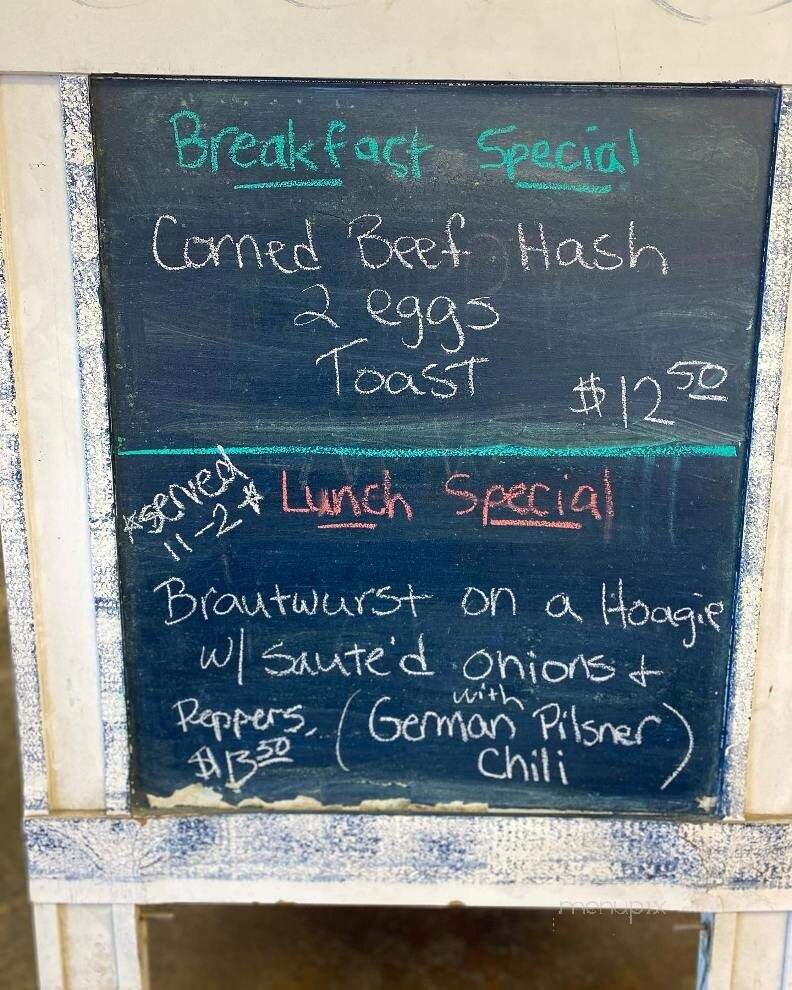 Breakfast Special
Corned Beef Hash
2 eggs
Toast
$12 50
*served
11-2*
Lunch Special
Brautwurst on a Hoagie
w/ Saute'd onions &
Peppers. (with German Pilsner
Chili)
$13 50
menupix